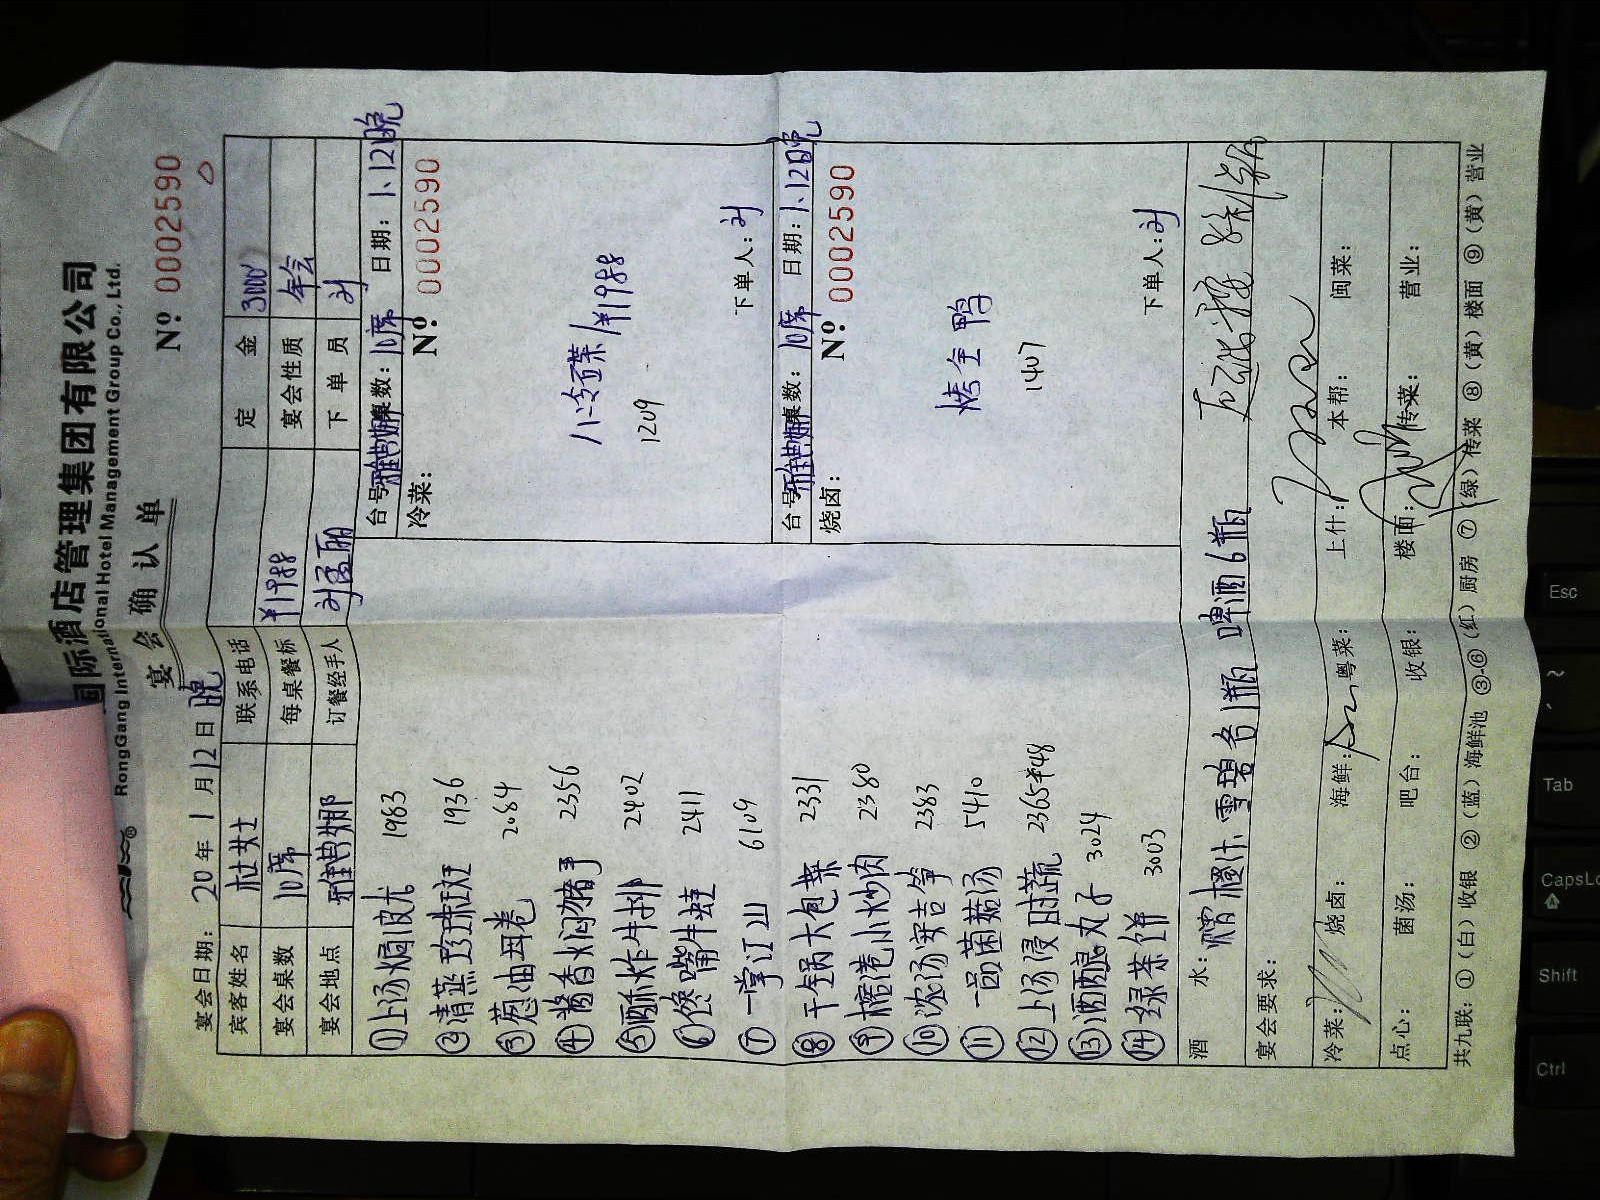 国际酒店管理集团有限公司
RongGang International Hotel Management Group Co., Ltd.
宴会确认单
Nº 0002590
宴会日期: 20 年 1 月 12 日 晚
宾客姓名 杜女士 联系电话 定金 3000
宴会桌数 10席 每桌餐标 ¥1988 宴会性质 年会
宴会地点 雅典娜 订餐经手人 下单员 刘
①上汤焗波龙 1983
②清蒸珍珠斑 1936
③葱油母卷 2084
④酱香焖猪手 2356
⑤酥炸牛排 2402
⑥馋嘴牛蛙 2411
⑦一掌江山 6109
⑧干锅大包菜 2331
⑨榕港小炒肉 2380
⑩浓汤窝吉笋 2383
⑪一品菌菇汤 5410
⑫上汤浸时蔬 2365
⑬酒酿丸子 3024
⑭绿茶饼 3003
台号 雅典娜 桌数: 10席 日期: 1.12晚
冷菜: Nº 0002590
八冷菜 ¥1988
1209
下单人: 刘
台号 雅典娜 桌数: 10席 日期: 1.12晚
烧卤: Nº 0002590
烤全鸭
1407
下单人: 刘
酒水: 橙汁 雪碧各1瓶 啤酒6瓶
宴会要求:
冷菜: 烧卤: 海鲜: 粤菜: 上什: 本帮: 闽菜:
点心: 菌汤: 吧台: 收银: 楼面: 传菜: 营业:
共九联: ①(白)收银 ②(蓝)海鲜池 ③-⑥(红)厨房 ⑦(绿)传菜 ⑧(黄)楼面 ⑨(黄)营业
Esc
Tab
CapsLo
Shift
Ctrl